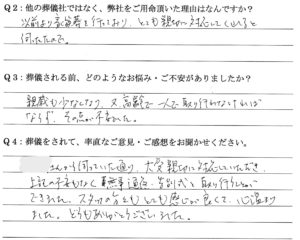 Q2：他の葬儀社ではなく、弊社をご用命頂いた理由はなんですか？
以前より家族葬を行っており、とても親切に対応してくれると
伺ったので。
Q3：葬儀される前、どのようなお悩み・ご不安がありましたか？
親戚も少なくなり、又、高齢で一人で取り行わなければ
ならず、その点が不安でした。
Q4：葬儀をされて、率直なご意見・ご感想をお聞かせください。
さんから伺っていた通り、大変親切に対応していただき
上記の不安もなく無事通夜・告別式と取り行うことが
できました。スタッフの方もとても感じが良くて、心温まり
ました。どうもありがとうございました。